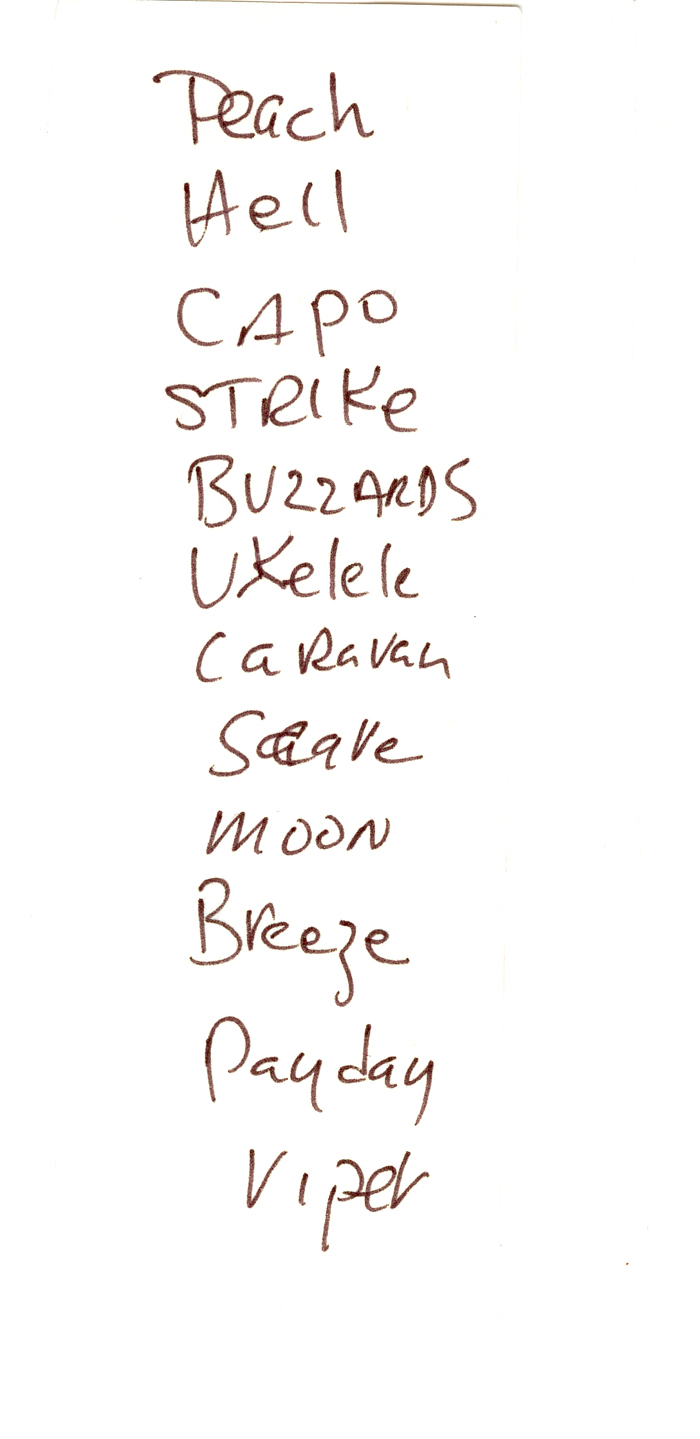 Peach
Hell
CAPO
STRIKe
BUZZARDS
UKelele
CaRavan
MOON
Breeze
Payday
Viper